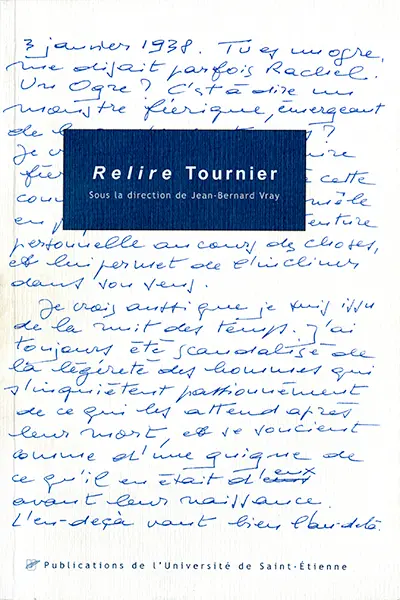 3 janvier 1938. Tu es un ogre,
me disait parfois Rachel.
Un Ogre ? C'est à dire un
monstre féerique, émergeant
de la
?
Je
fée
cette
com
mêle
en
personnelle au cours des choses,
et lui permet de l'incliner
dans son sens.
Relire Tournier
Sous la direction de Jean-Bernard Vray
Je crois aussi que je suis issu
de la nuit des temps. J'ai
toujours été scandalisé de
la légèreté des hommes qui
s'inquiètent passionnément
de ce qui les attend après
leur mort, et se soucient
comme d'une guigne de
ce qu'il en était d'eux
avant leur naissance.
L'en-deçà vaut bien l'au-delà
Publications de l'Université de Saint-Étienne